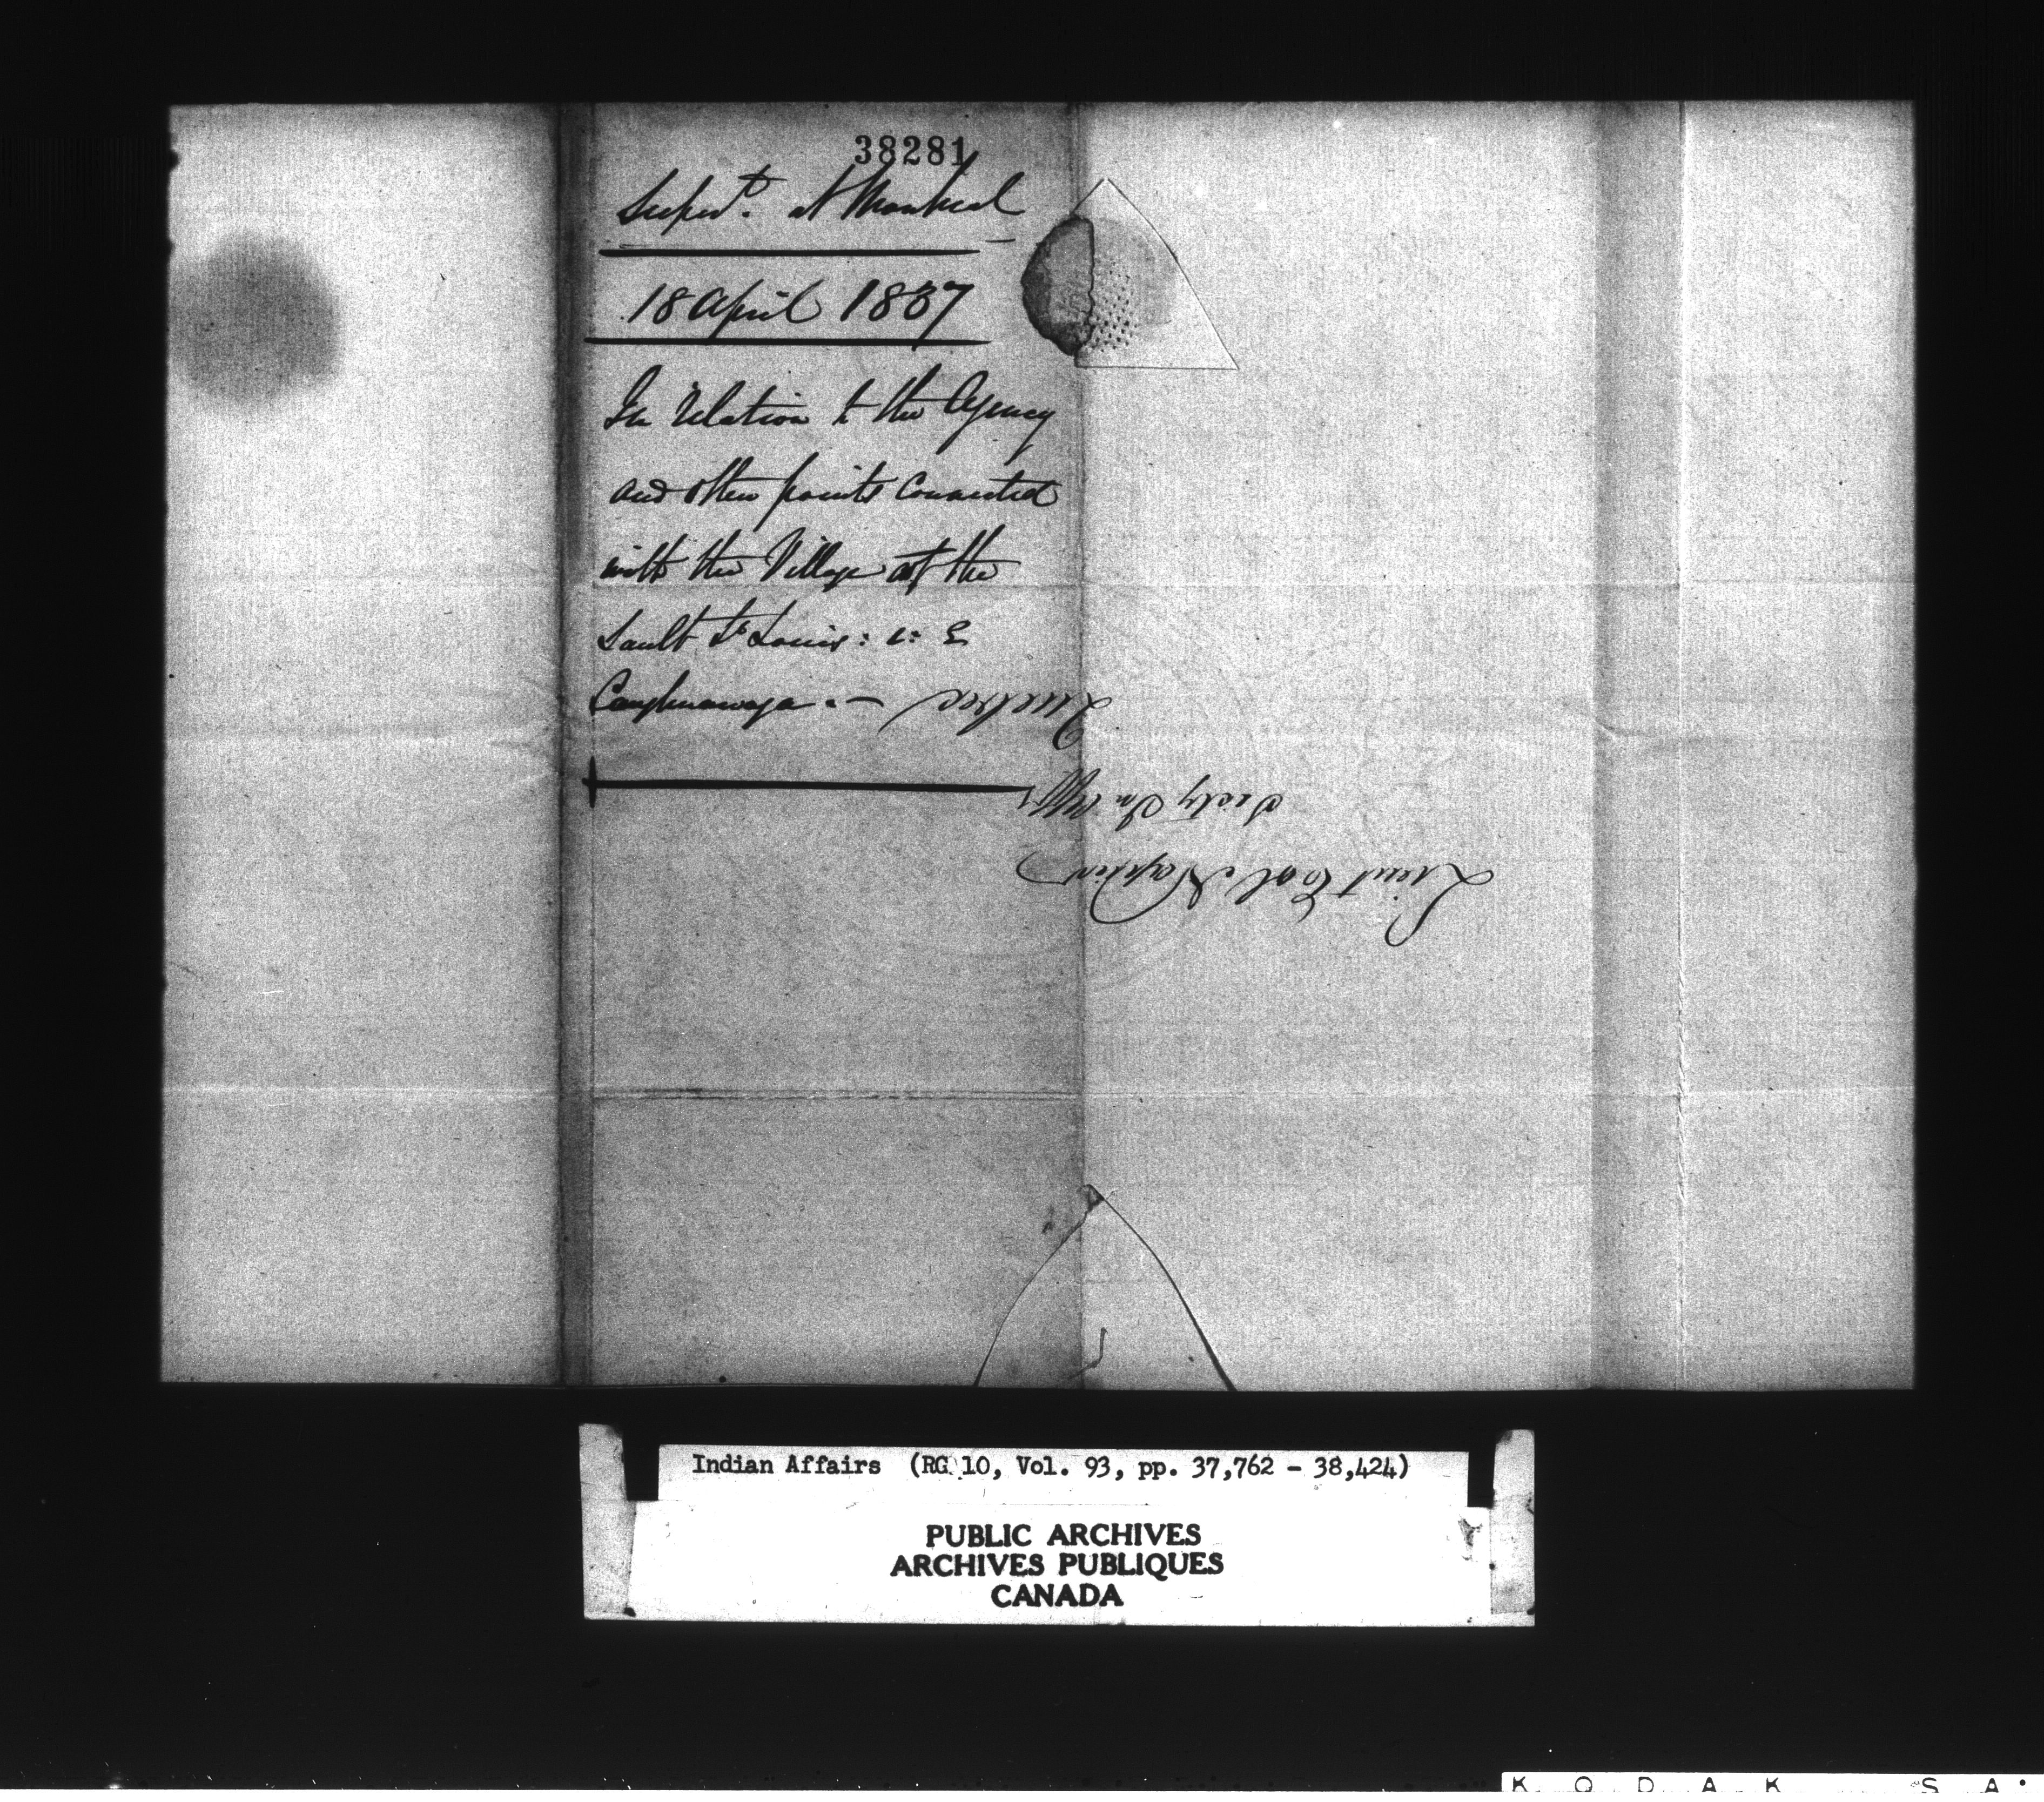 38281
Supert. at Montreal
18 April 1837
In relation to the Agency
and other points connected
with the Village at the
Sault St Louis: L: C
Caughnawaga. —
Lieut Col Napier
Secty In. Affrs
Quebec
Indian Affairs (RG 10, Vol. 93, pp. 37,762 - 38,424)
PUBLIC ARCHIVES
ARCHIVES PUBLIQUES
CANADA
K O D A K S A